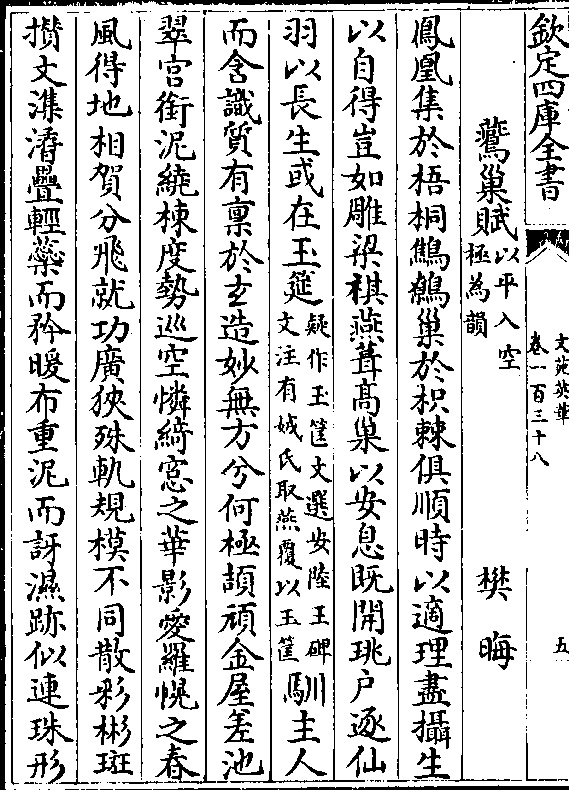 欽定四庫全書
文苑英華
卷一百三十八
五
鷰巢賦以平入空極為韻
樊晦
鳳凰集於梧桐鷦鷯巢於枳棘俱順時以適理盡攝生
以自得豈如雕梁祺燕葺高巢以安息既開珧户逐仙
羽以長生或在玉筵疑作玉筐文選安陸王碑文注有娀氏取燕覆以玉筐馴主人
而含識質有禀於玄造妙無方兮何極頡頏金屋差池
翠宮銜泥繞棟度勢巡空憐綺窓之華影愛羅幌之春
風得地相賀分飛就功廣狹殊軌規模不同散彩彬斑
攅文潗濳疊輕蘂而矜暖布重泥而訝濕跡似連珠形